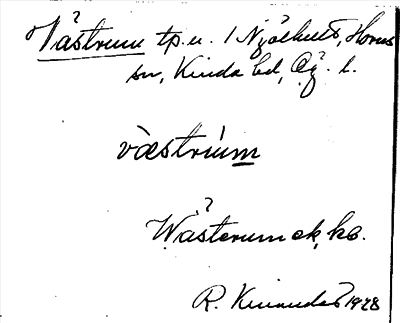 Västrum tp.u. 1 Njälhult, Horns
sn, Kinda hd, Ög. l.
vàestrúm
Wästerum ek, ka.
R. Kinander 1928